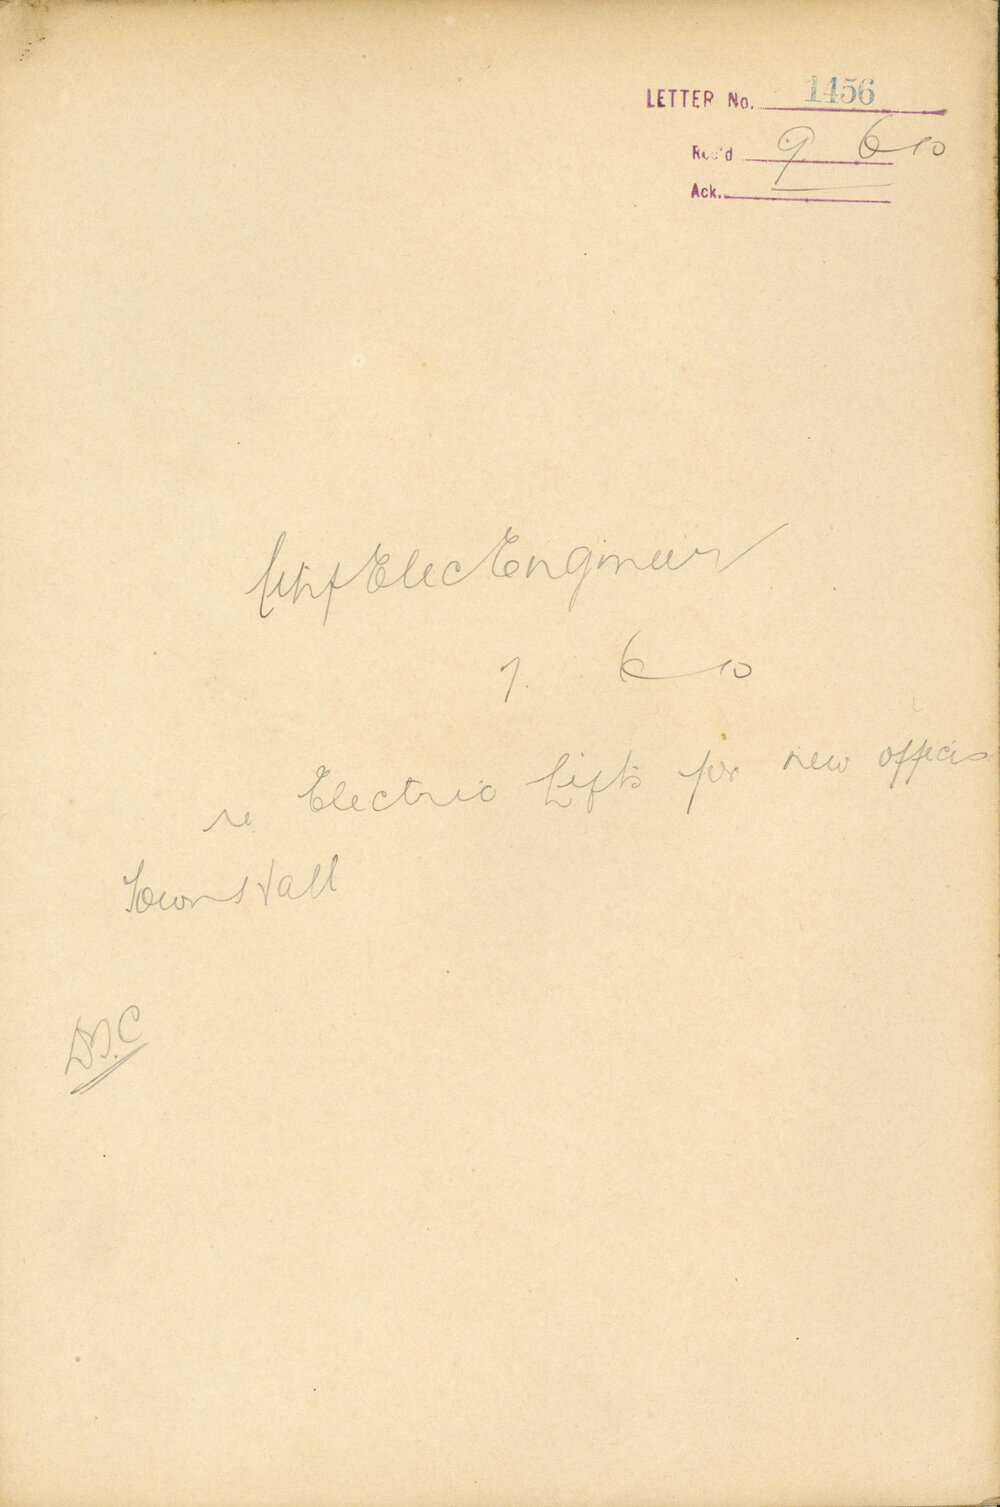 LETTER No. 1456
Rec'd 9 6 10
Ack.
City Elec Engineer
7. 6 10
re Electric Lifts for new offices
Town Hall